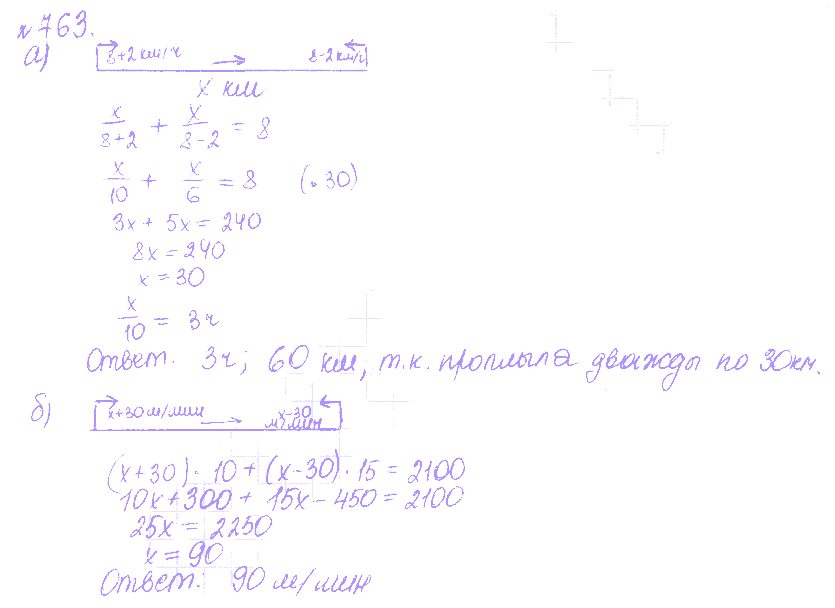 № 763.
а)
8+2 км/ч 8-2 км/ч
x км
x/(8+2) + x/(8-2) = 8
x/10 + x/6 = 8 (·30)
3x + 5x = 240
8x = 240
x = 30
x/10 = 3ч
Ответ. 3ч; 60 км, т.к. проплыла дважды по 30км.
б)
x+30 м/мин x-30 м/мин
(x+30)·10 + (x-30)·15 = 2100
10x+300+ 15x-450 = 2100
25x = 2250
x = 90
Ответ. 90 м/мин